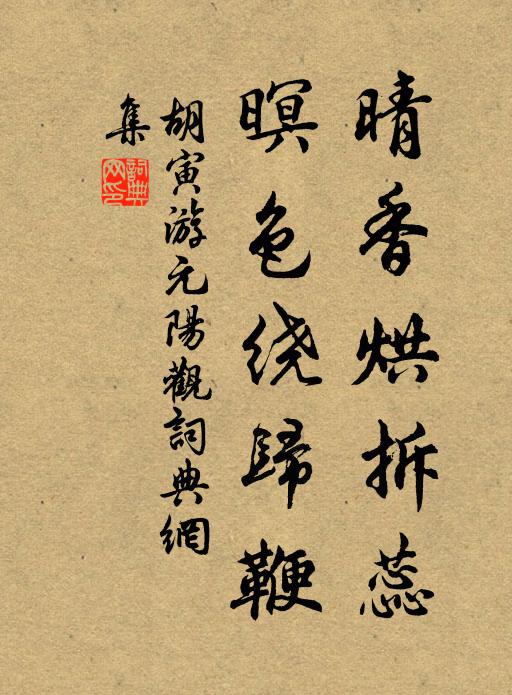 晴香烘拆蕊
暝色绕歸鞭
胡寅游元陽觀詞典網
集
詞典网印